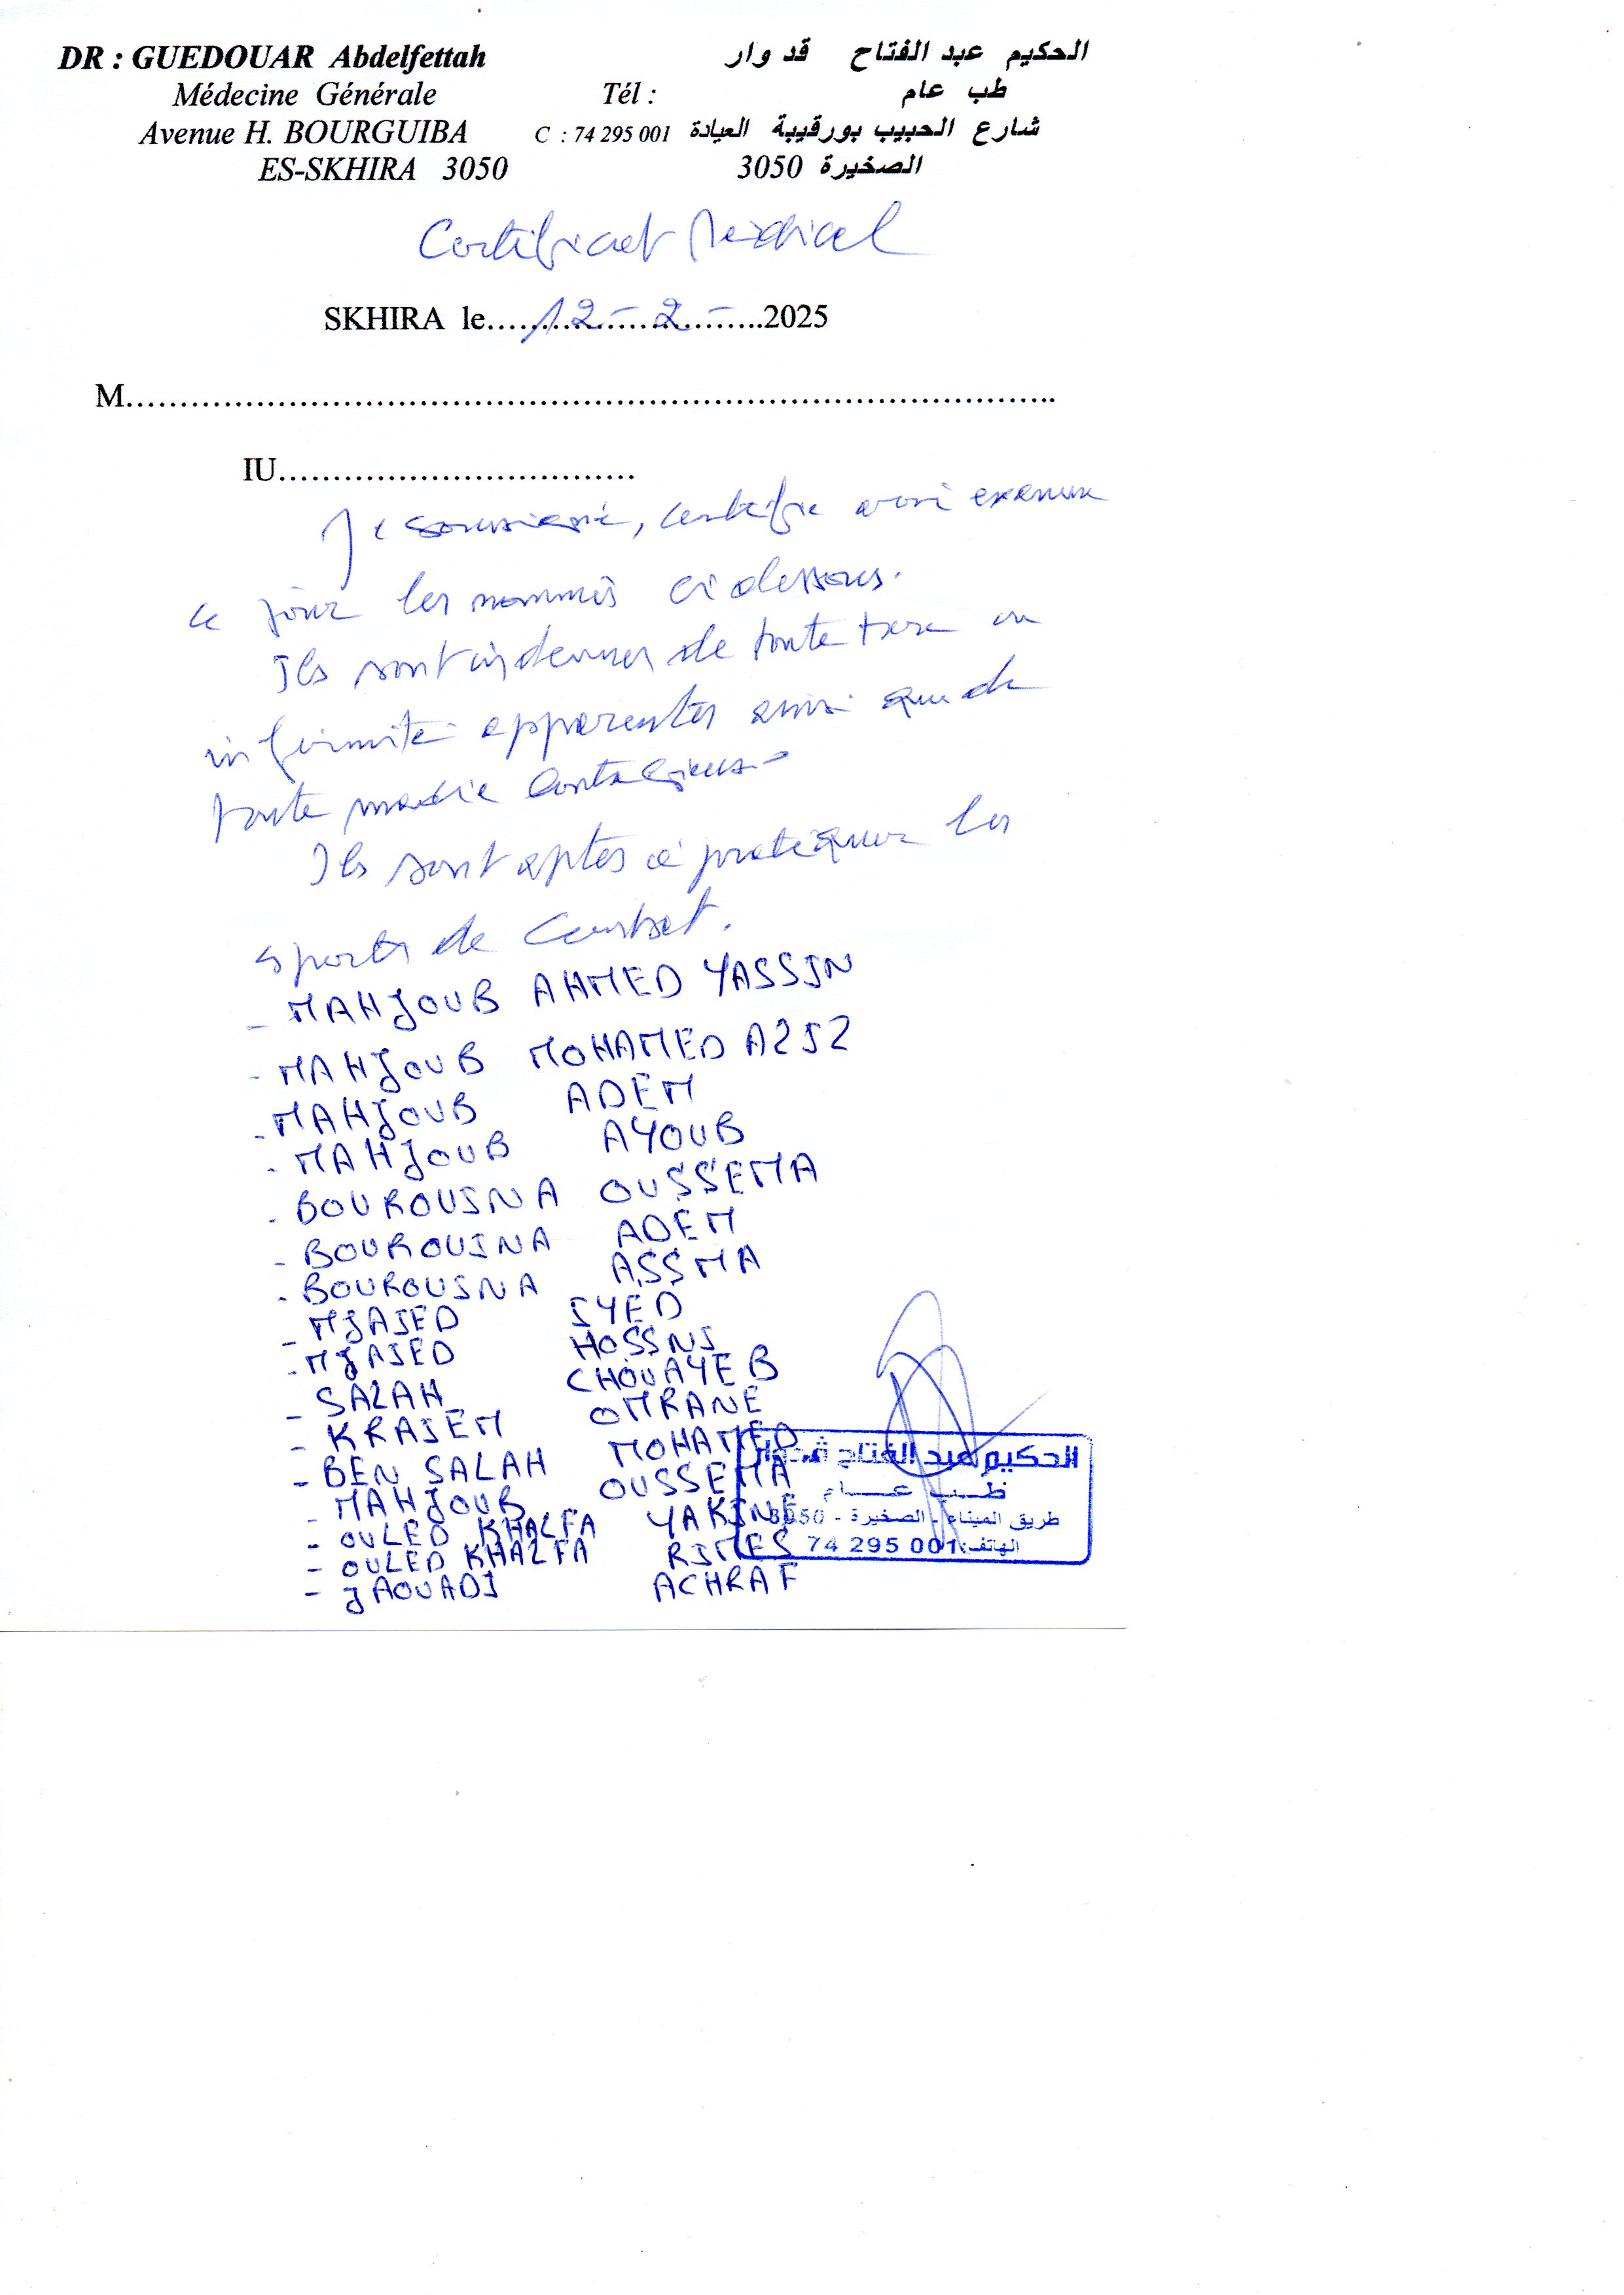 DR : GUEDOUAR Abdelfettah
الحكيم عبد الفتاح قدوار
Médecine Générale
Tél :
طب عام
Avenue H. BOURGUIBA
C : 74 295 001 العيادة شارع الحبيب بورقيبة
ES-SKHIRA 3050
الصخيرة 3050
Certificat Médical
SKHIRA le..........12-2-..........2025
M..........
IU..........
Je soussigné, certifie avoir examiné
ce jour les nommés ci dessous.
Ils sont indemnes de toute tare ou
infirmité apparentes ainsi que de
toute maladie contagieuse
Ils sont aptes à pratiquer les
sports de Combat.
- MAHJOUB AHMED YASSIN
- MAHJOUB MOHAMED AZIZ
- MAHJOUB ADEM
- MAHJOUB AYOUB
- BOUROUINA OUSSEMA
- BOUROUINA ADEM
- BOUROUINA ASSMA
- MJAIED IYED
- MJAIED HOSSNI
- SALAH CHOUAYEB
- KRAIEM OMRANE
- BEN SALAH MOHAMED
- MAHJOUB OUSSEMA
- OULED KHALFA YAKINE
- OULED KHALFA RIMES
- JAOUADI ACHRAF
الحكيم عبد الفتاح قدوار
طب عام
طريق الميناء - الصخيرة - 3050
الهاتف: 74 295 001